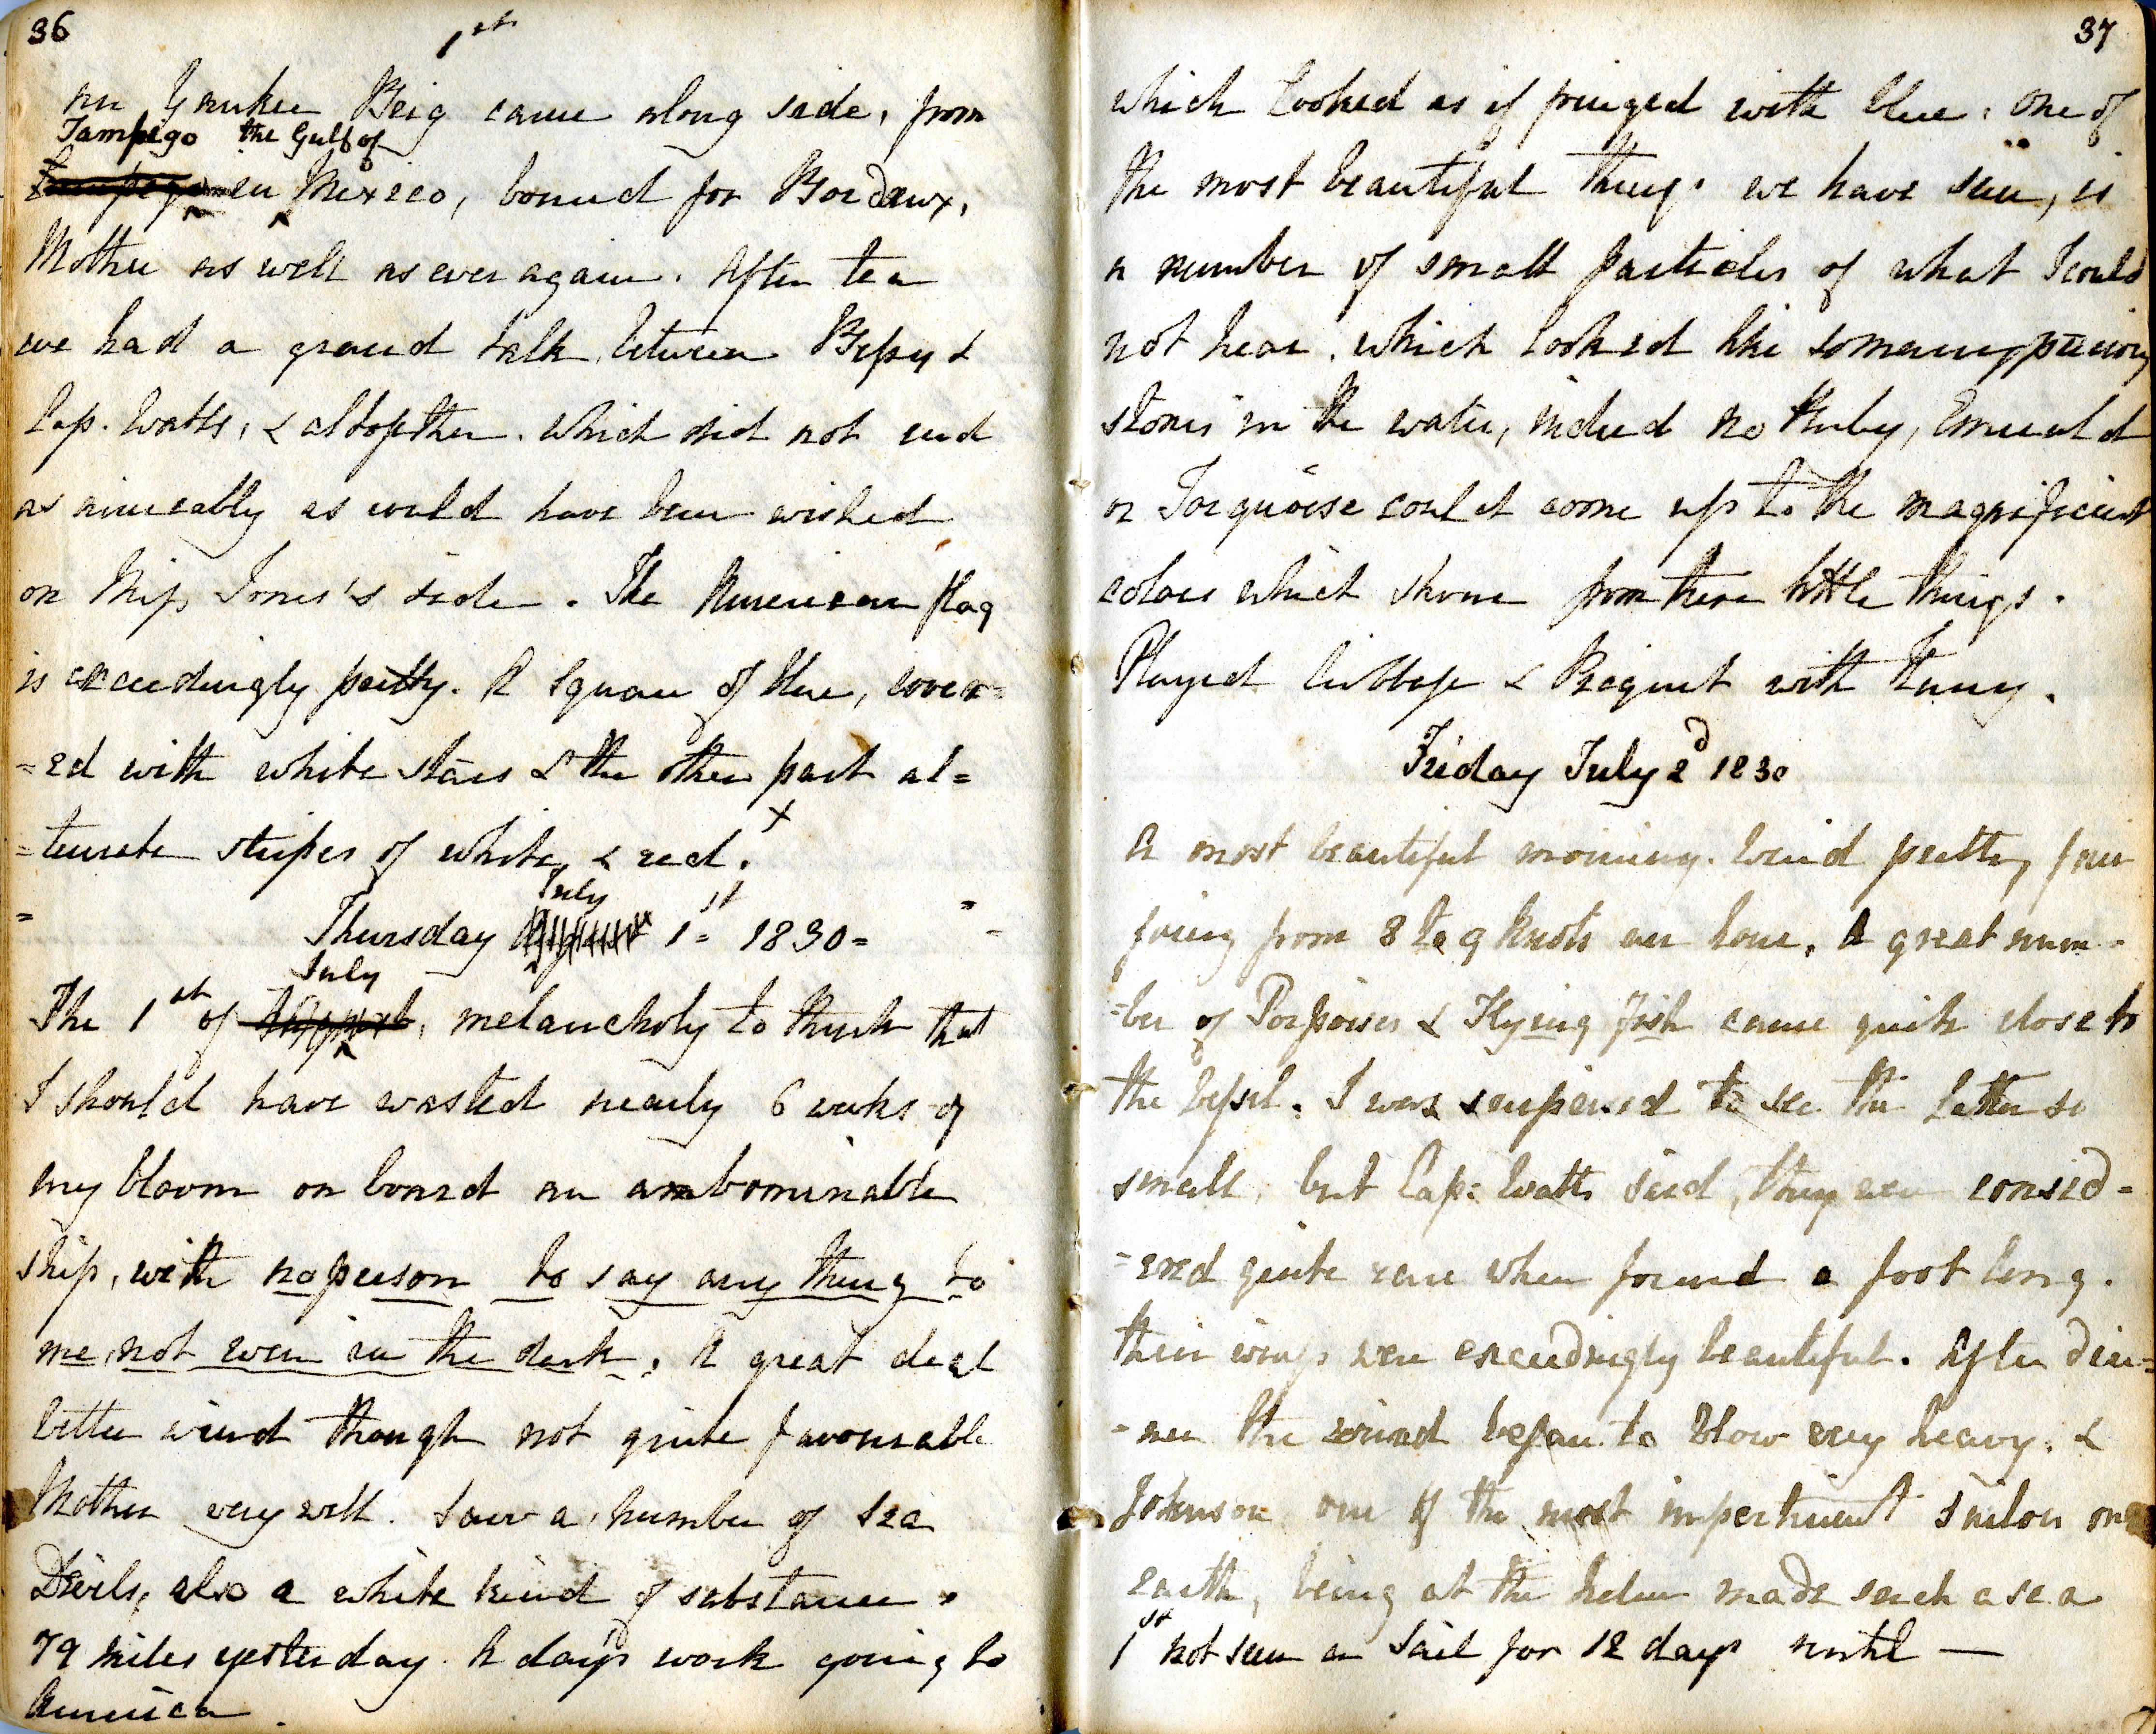 36
1st
an Yankee Brig came along side, from
Tampego the Gulf of
Tampego in Mexeco, bound for Bordeux,
Mother as well as ever again. After tea
we had a grand talk, between Bepsy &
Cap. Watts, & altogether. which did not end
as amicably as could have been wished
on Miss Jones's side. The American flag
is exceedingly pretty. A Square of blue, cover=
=ed with white stars & the other part al=
=ternate stripes of white, & red. x
July
= Thursday August 1st 1830=
July
The 1st of August, melancholy to think that
I should have wasted nearly 6 weeks of
my bloom on board an ambominable
ship, with no person to say any thing to
me, not even in the dark. A great deal
better wind though not quite favourable
Mother very well. Saw a number of Sea
Devils, also a white kind of substance,
79 miles yesterday. A day's work going to
America.
37
which looked as if fringed with blue: one of
the most beautiful things we have seen, is
a number of small particles of what I could
not hear, which looked like so many precious
stones in the water, indeed no Ruby, Emerald
or Torquoise could come up to the magnificient
colors which shone from these little things.
Played Cribbage & Piequet with Fanny.
Friday July 2d 1830
A most beautiful morning. Wind pretty fair
going from 8 to 9 knots an hour, A great num-
=ber of Porpoises & Flying Fish came quite close to
the Vessel. I was surprised to see the latter so
small, but Cap: Watts said, they were consid=
=ered quite rare when found a foot long.
their wings were exceedingly beautiful. After din=
=ner the wind began to blow very heavy, &
Johnson one of the most impertinent Sailors on
earth, being at the helm made such a sea
1st not seen a Sail for 12 days until —